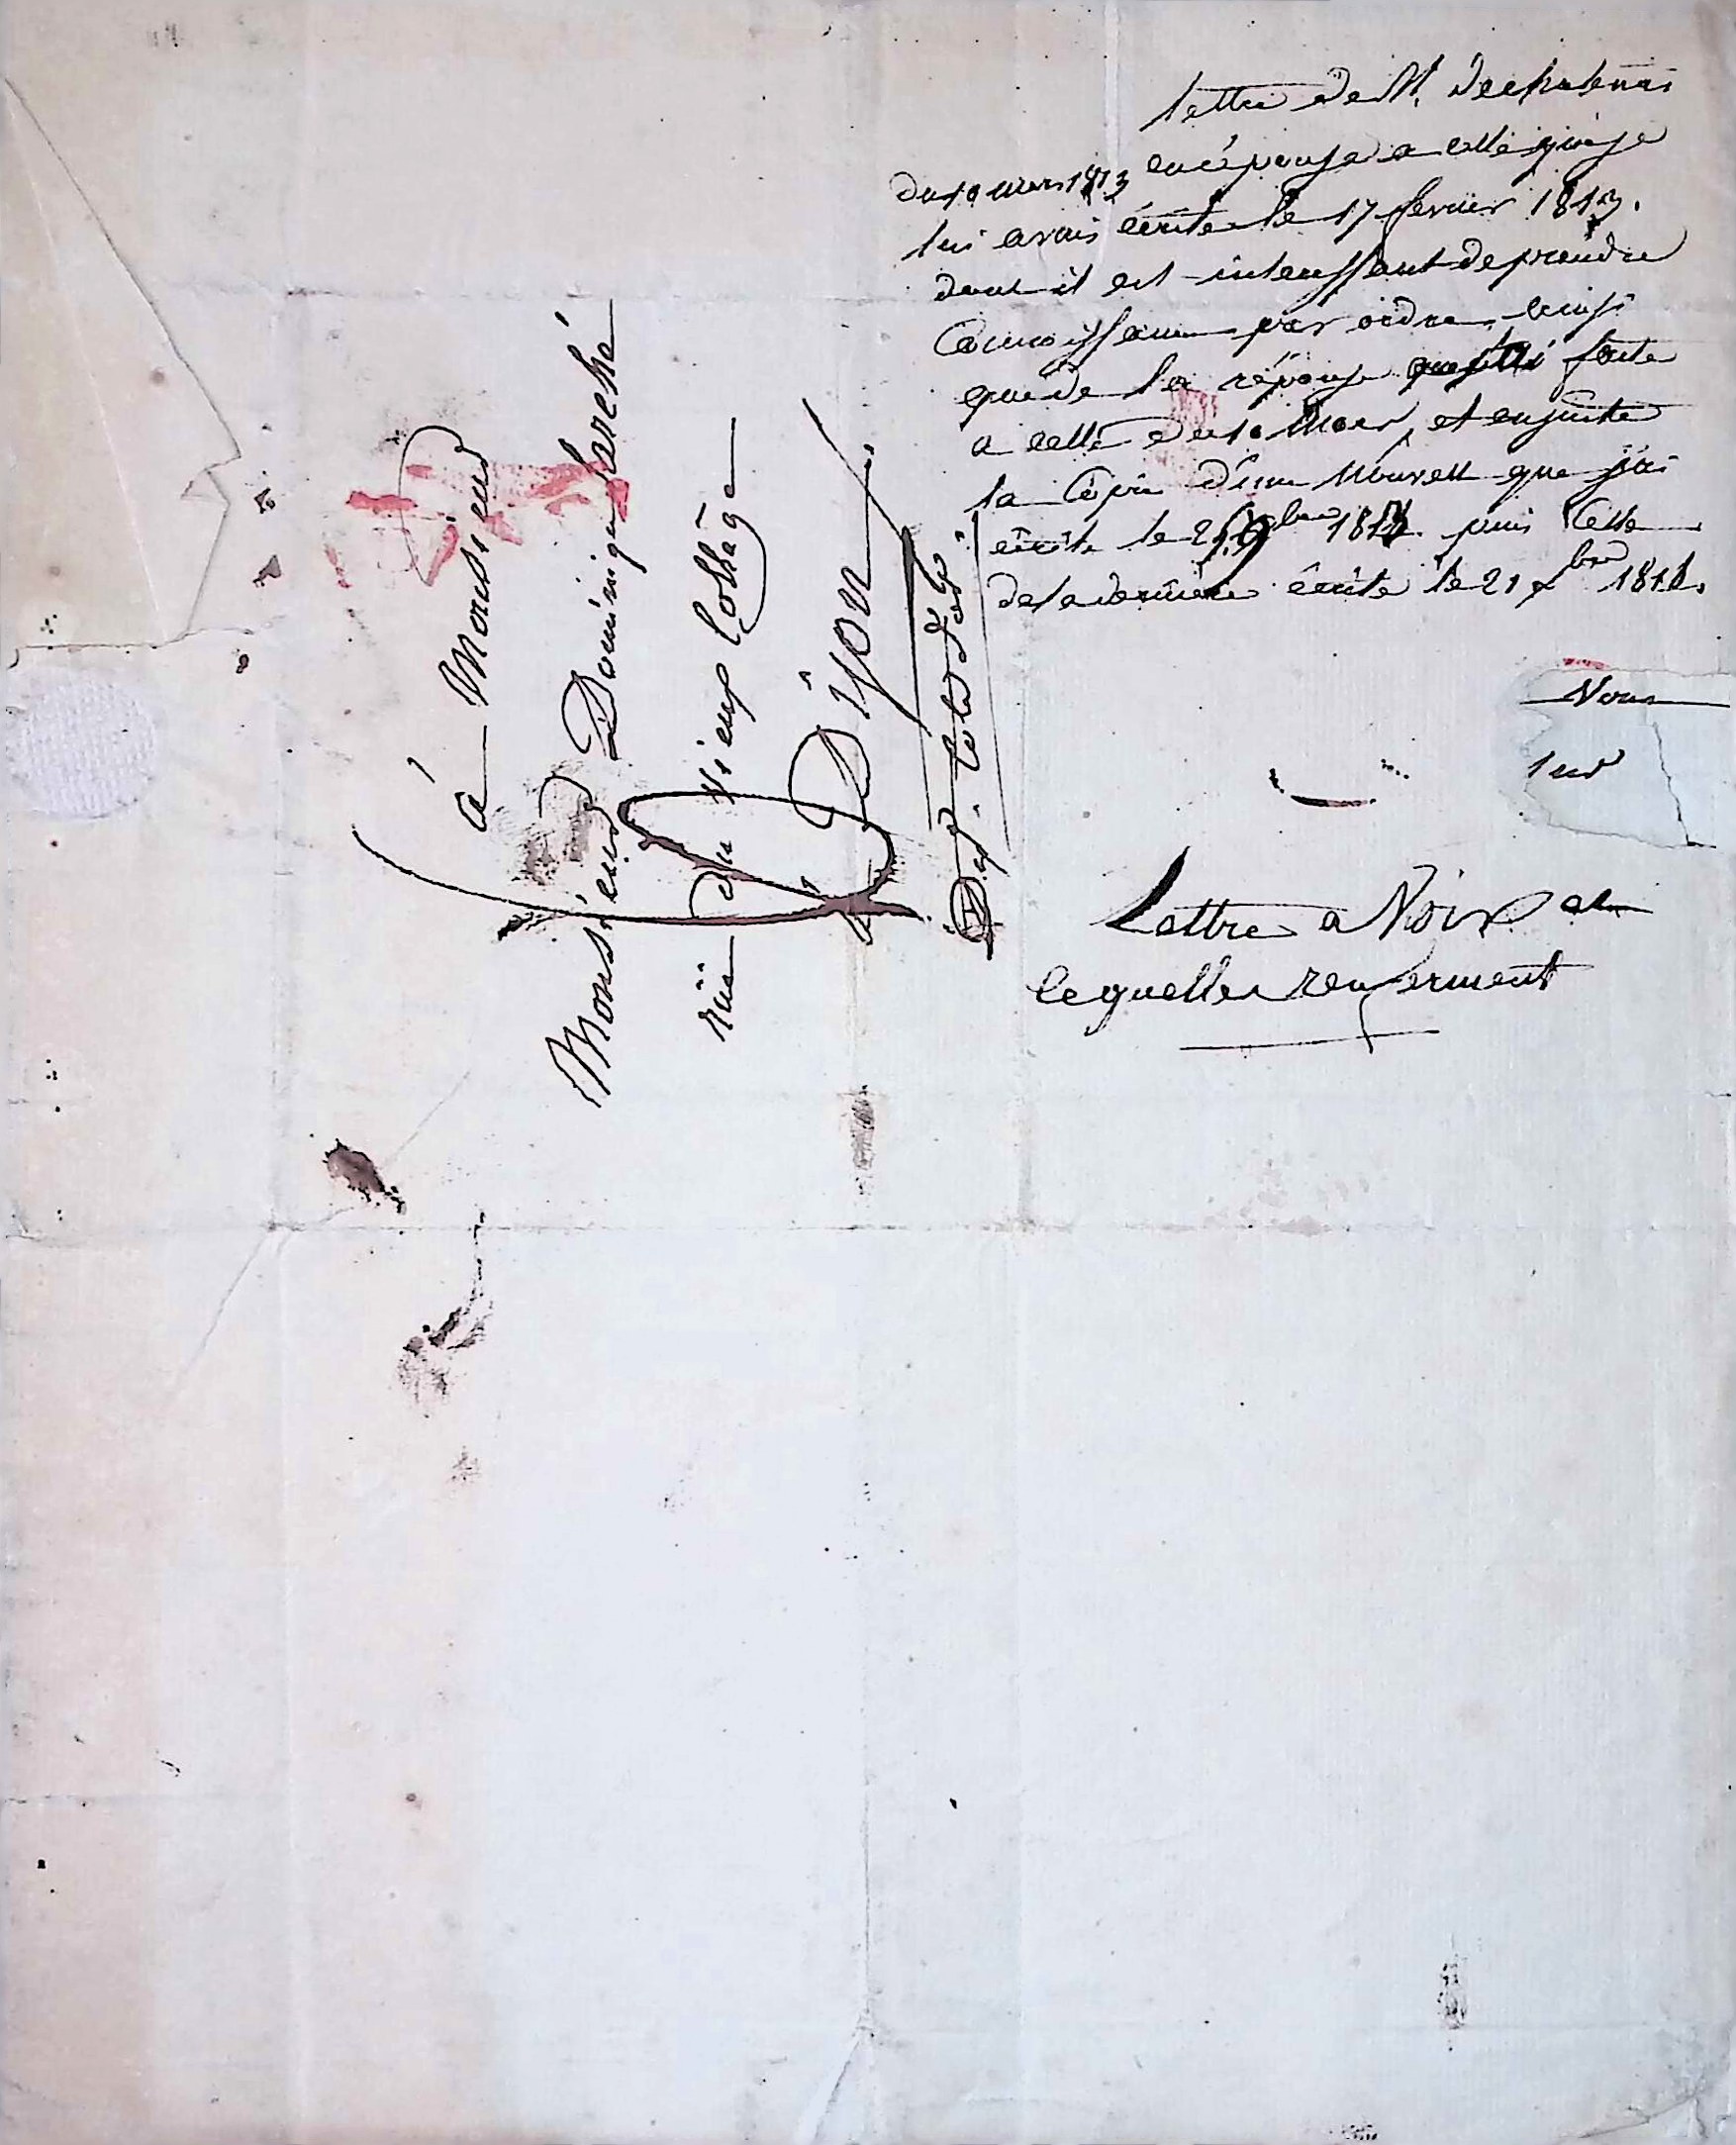 lettre de M. dechatenai
du 10 mars 1813 en réponse a celle que je
lui avais écrite le 17 fevrier 1813.
dont il est interessant de prendre
Connoissance par ordre, ainsi
que de la réponse faite
a celle du 10 Mars, et ensuite
la Copie d'une Nouvelle que j'ai
écrite le 9bre 181 puis Celle
de la dernière écrite le 21 xbre 181
Vous
leur
Lettre a Voir et
lequelles renferment
à Monsieur
Monsieur Dominique Lareché
rüe du vieux Collège
à Dijon
Dépt. de la Côte d'or